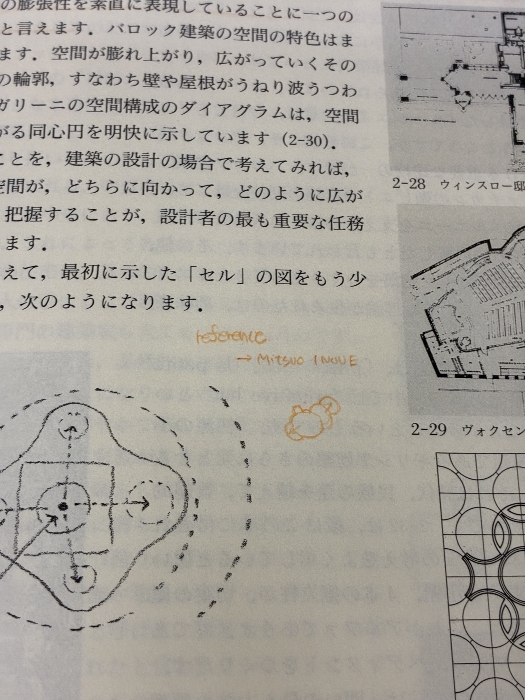 の膨張性を素直に表現していることに一つの
と言えます．バロック建築の空間の特色はま
ます．空間が膨れ上がり，広がっていくその
の輪郭，すなわち壁や屋根がうねり波うつわ
ガリーニの空間構成のダイアグラムは，空間
がる同心円を明快に示しています（2-30）．
ことを，建築の設計の場合で考えてみれば，
空間が，どちらに向かって，どのように広が
把握することが，設計者の最も重要な任務
ます．
えて，最初に示した「セル」の図をもう少
，次のようになります．
reference
→ MITSUO INOUE
2-28 ウィンスロー邸
2-29 ヴォクセン